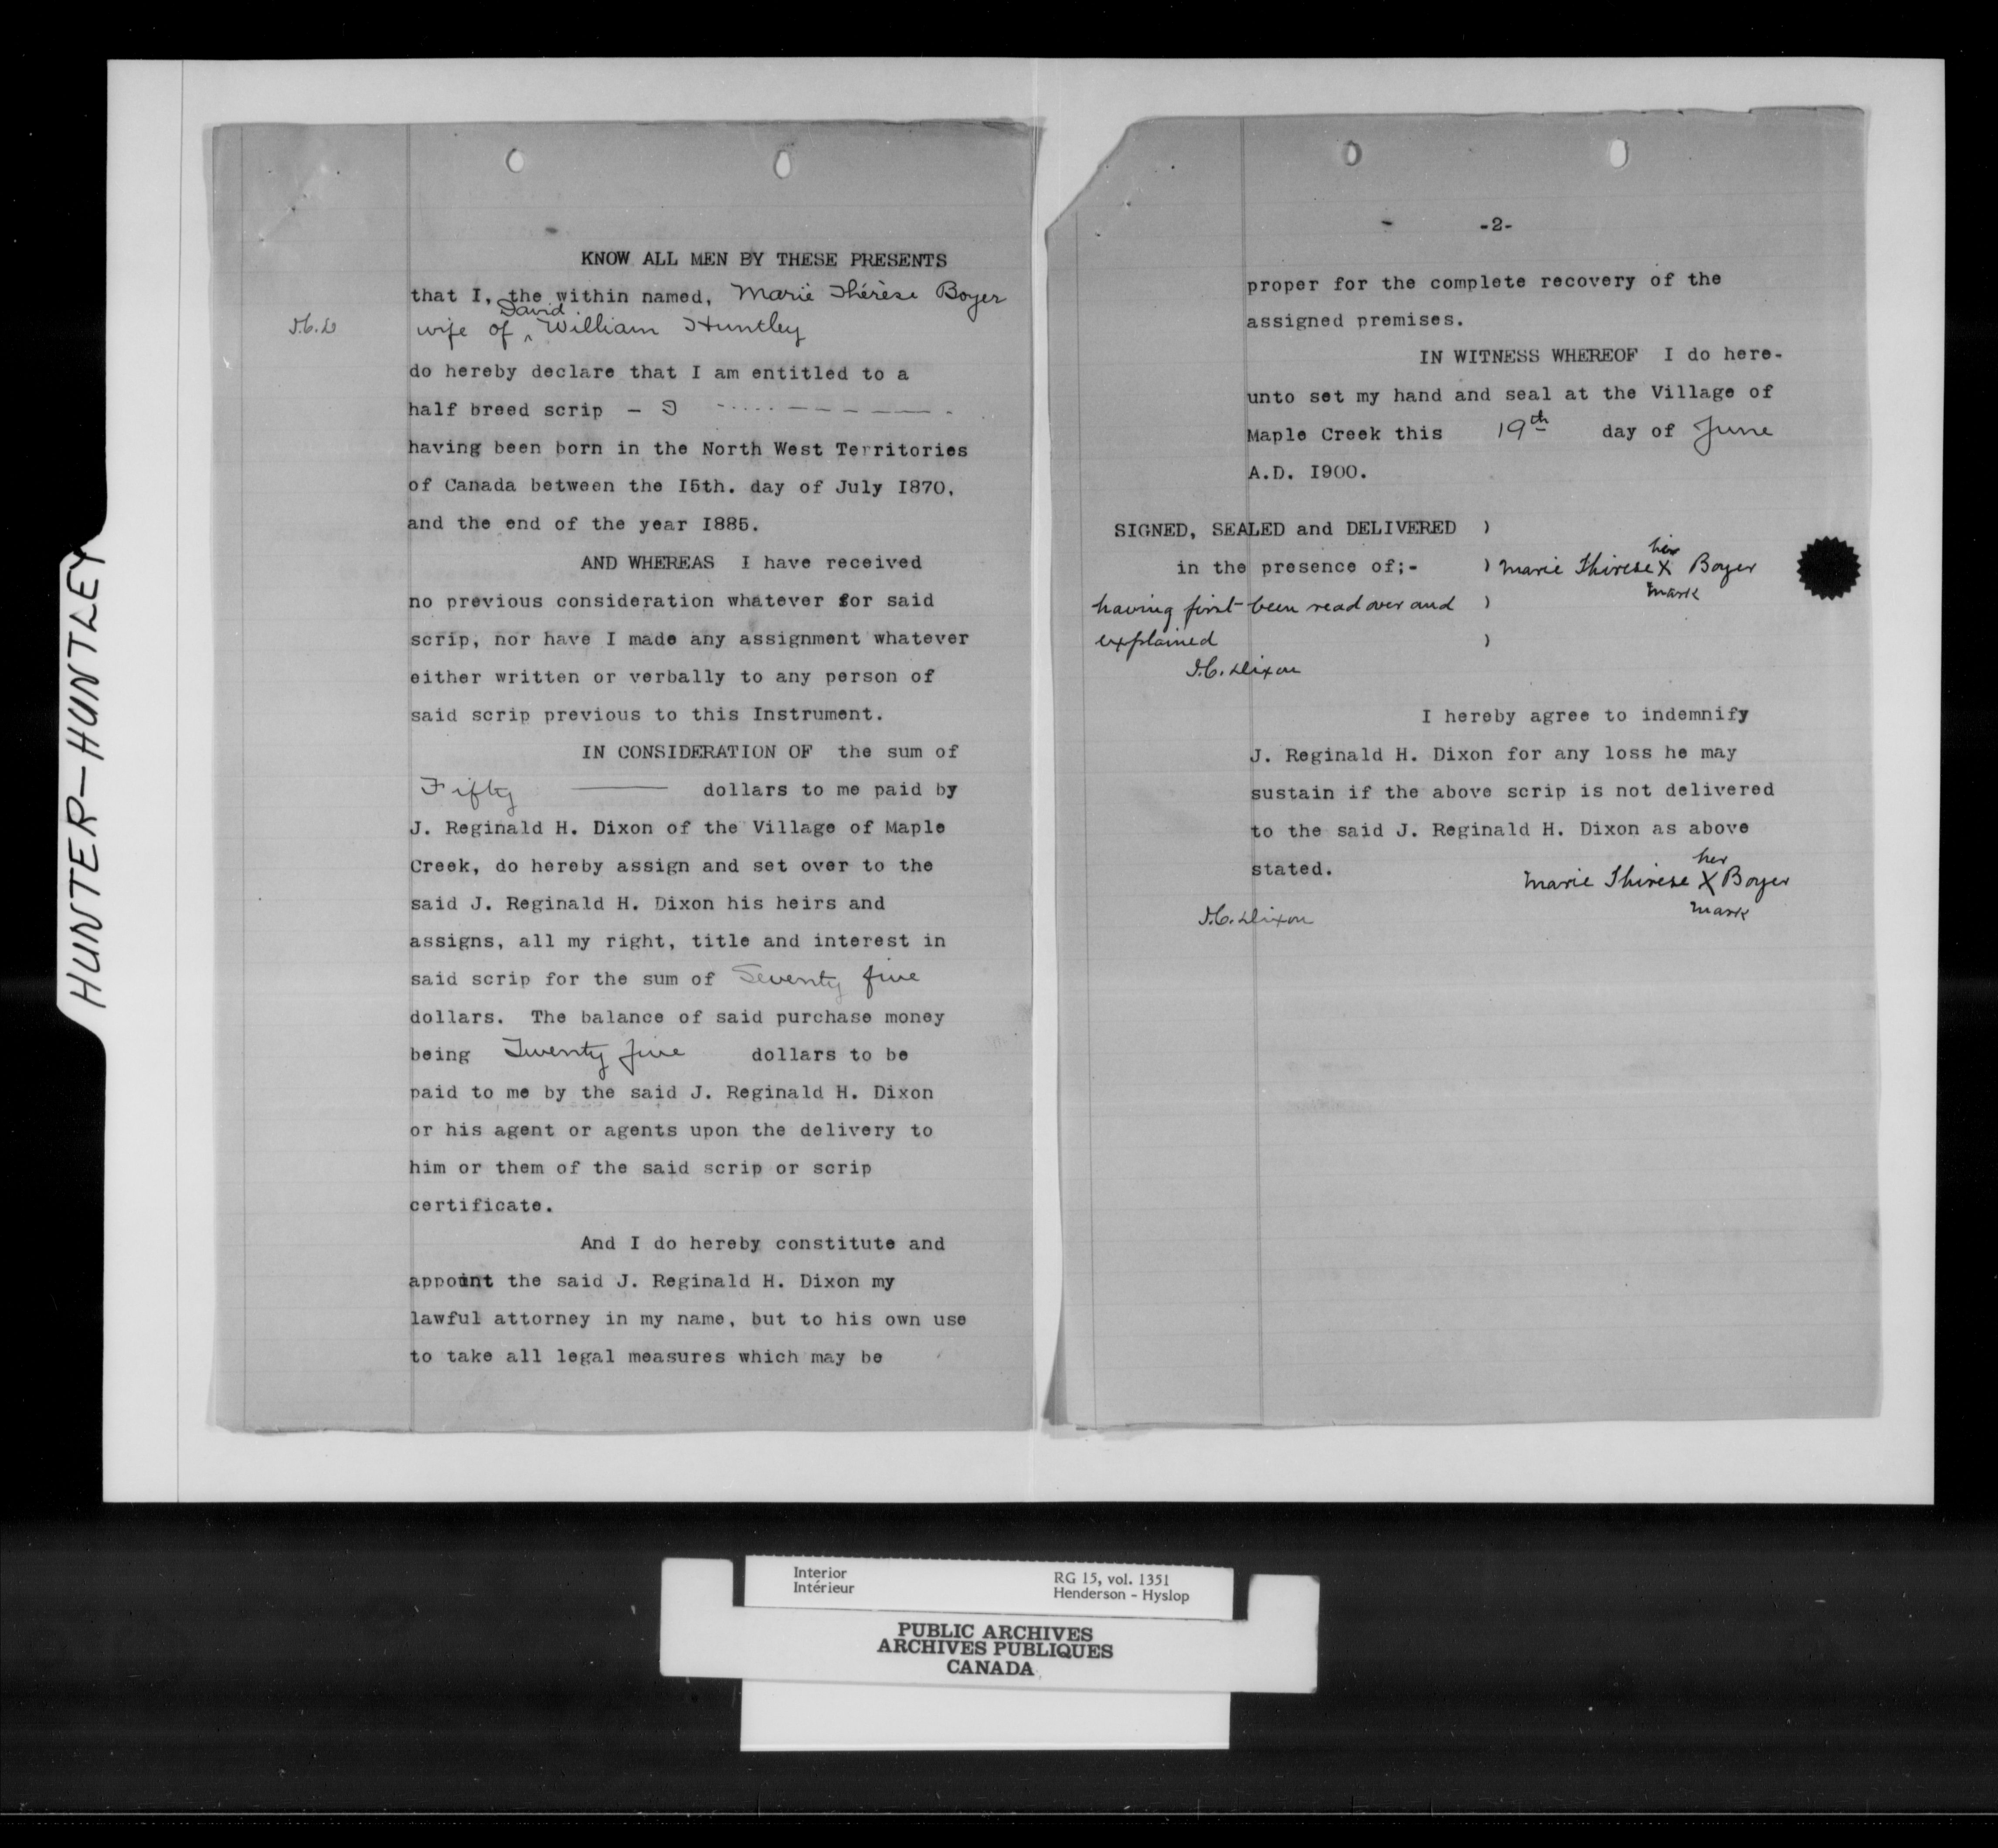 HUNTER-HUNTLEY
KNOW ALL MEN BY THESE PRESENTS
that I, the within named, Marie Thérèse Boyer
David
wife of ^ William Huntley
do hereby declare that I am entitled to a
half breed scrip -
having been born in the North West Territories
of Canada between the I5th. day of July I870,
and the end of the year I885.
AND WHEREAS I have received
no previous consideration whatever for said
scrip, nor have I made any assignment whatever
either written or verbally to any person of
said scrip previous to this Instrument.
IN CONSIDERATION OF the sum of
Fifty ——— dollars to me paid by
J. Reginald H. Dixon of the Village of Maple
Creek, do hereby assign and set over to the
said J. Reginald H. Dixon his heirs and
assigns, all my right, title and interest in
said scrip for the sum of Seventy five
dollars. The balance of said purchase money
being Twenty five dollars to be
paid to me by the said J. Reginald H. Dixon
or his agent or agents upon the delivery to
him or them of the said scrip or scrip
certificate.
And I do hereby constitute and
appoint the said J. Reginald H. Dixon my
lawful attorney in my name, but to his own use
to take all legal measures which may be
-2-
proper for the complete recovery of the
assigned premises.
IN WITNESS WHEREOF I do here-
unto set my hand and seal at the Village of
Maple Creek this 19th day of June
A.D. I900.
SIGNED, SEALED and DELIVERED )
her
in the presence of;- ) Marie Thirese X Boyer
mark
having first been read over and )
explained )
Dixon
I hereby agree to indemnify
J. Reginald H. Dixon for any loss he may
sustain if the above scrip is not delivered
to the said J. Reginald H. Dixon as above
her
stated. Marie Thirese X Boyer
mark
Dixon
Interior
Intérieur
RG 15, vol. 1351
Henderson - Hyslop
PUBLIC ARCHIVES
ARCHIVES PUBLIQUES
CANADA